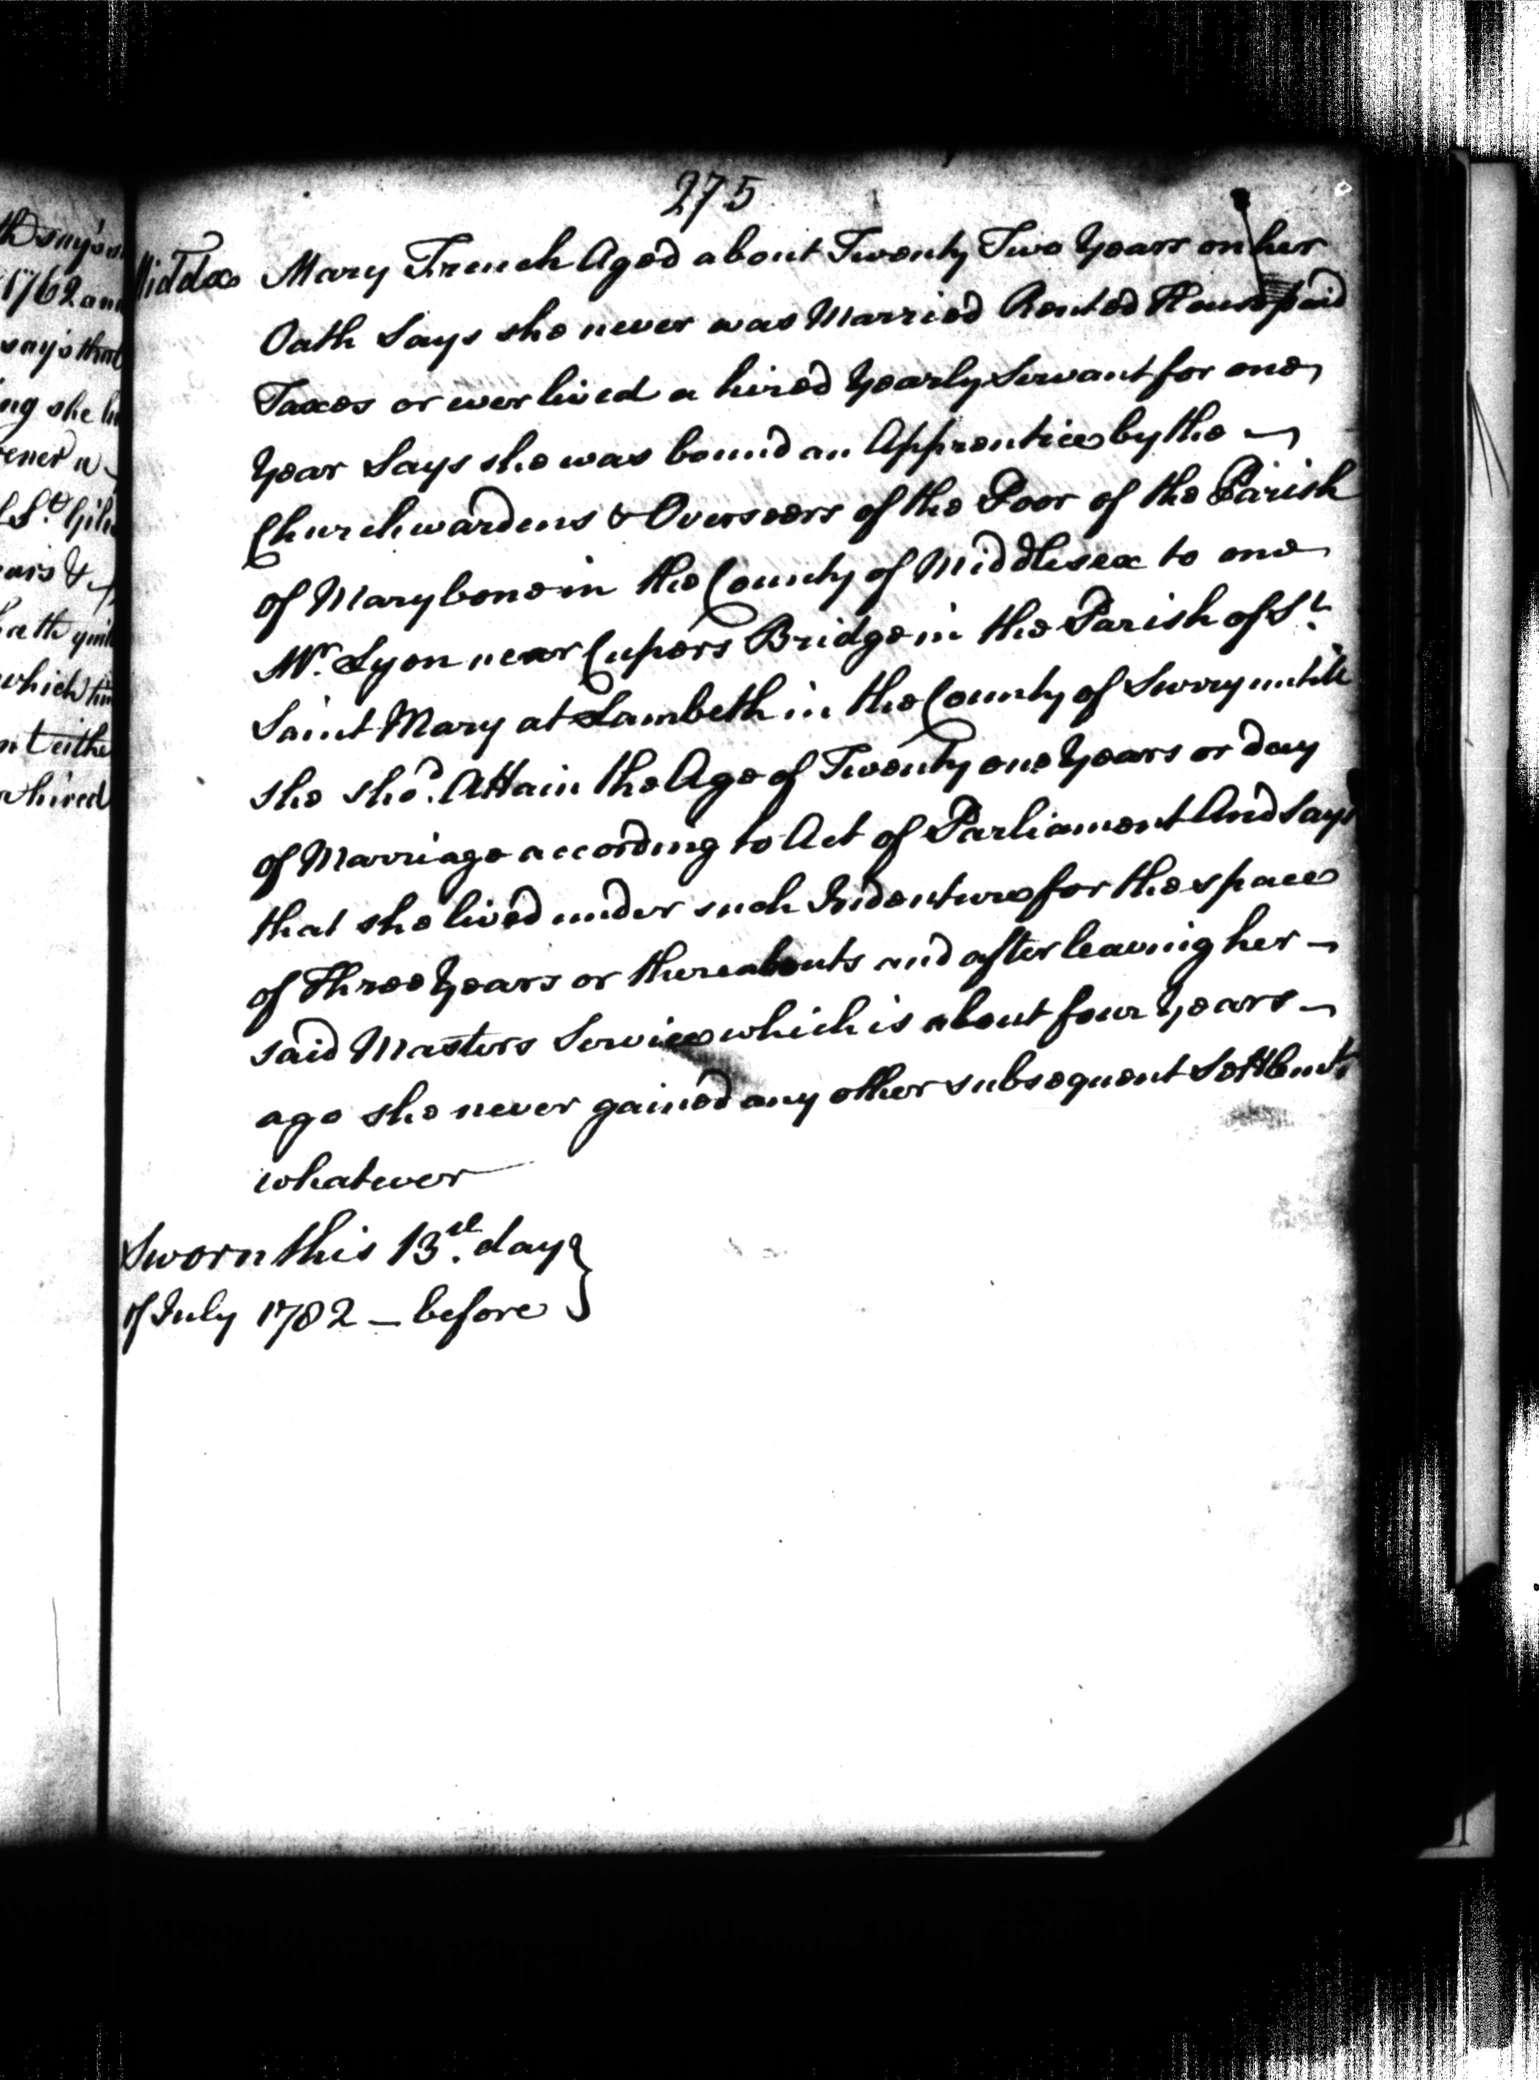 275
Middx Mary French Aged about Twenty Two Years on her
Oath Says she never was Married Rented House paid
Taxes or ever lived a hired Yearly Servant for one
Year Says she was bound an Apprentice by the
Churchwardens & Overseers of the Poor of the Parish
of Marybone in the County of Middlesex to one
Mr. Lyon near Cupers Bridge in the Parish of St.
Saint Mary at Lambeth in the County of Surry untill
she shod. Attain the Age of Twenty one Years or day
of Marriage according to Act of Parliament And Says
that she lived under such Indenture for the space
of Three Years or thereabouts and after leaving her
said Masters Service which is about four Years
ago she never gained any other subsequent Settlemt.
whatever
Sworn this 13th. day
of July 1782 - before
1762 and
says that
she
St.
which
hired